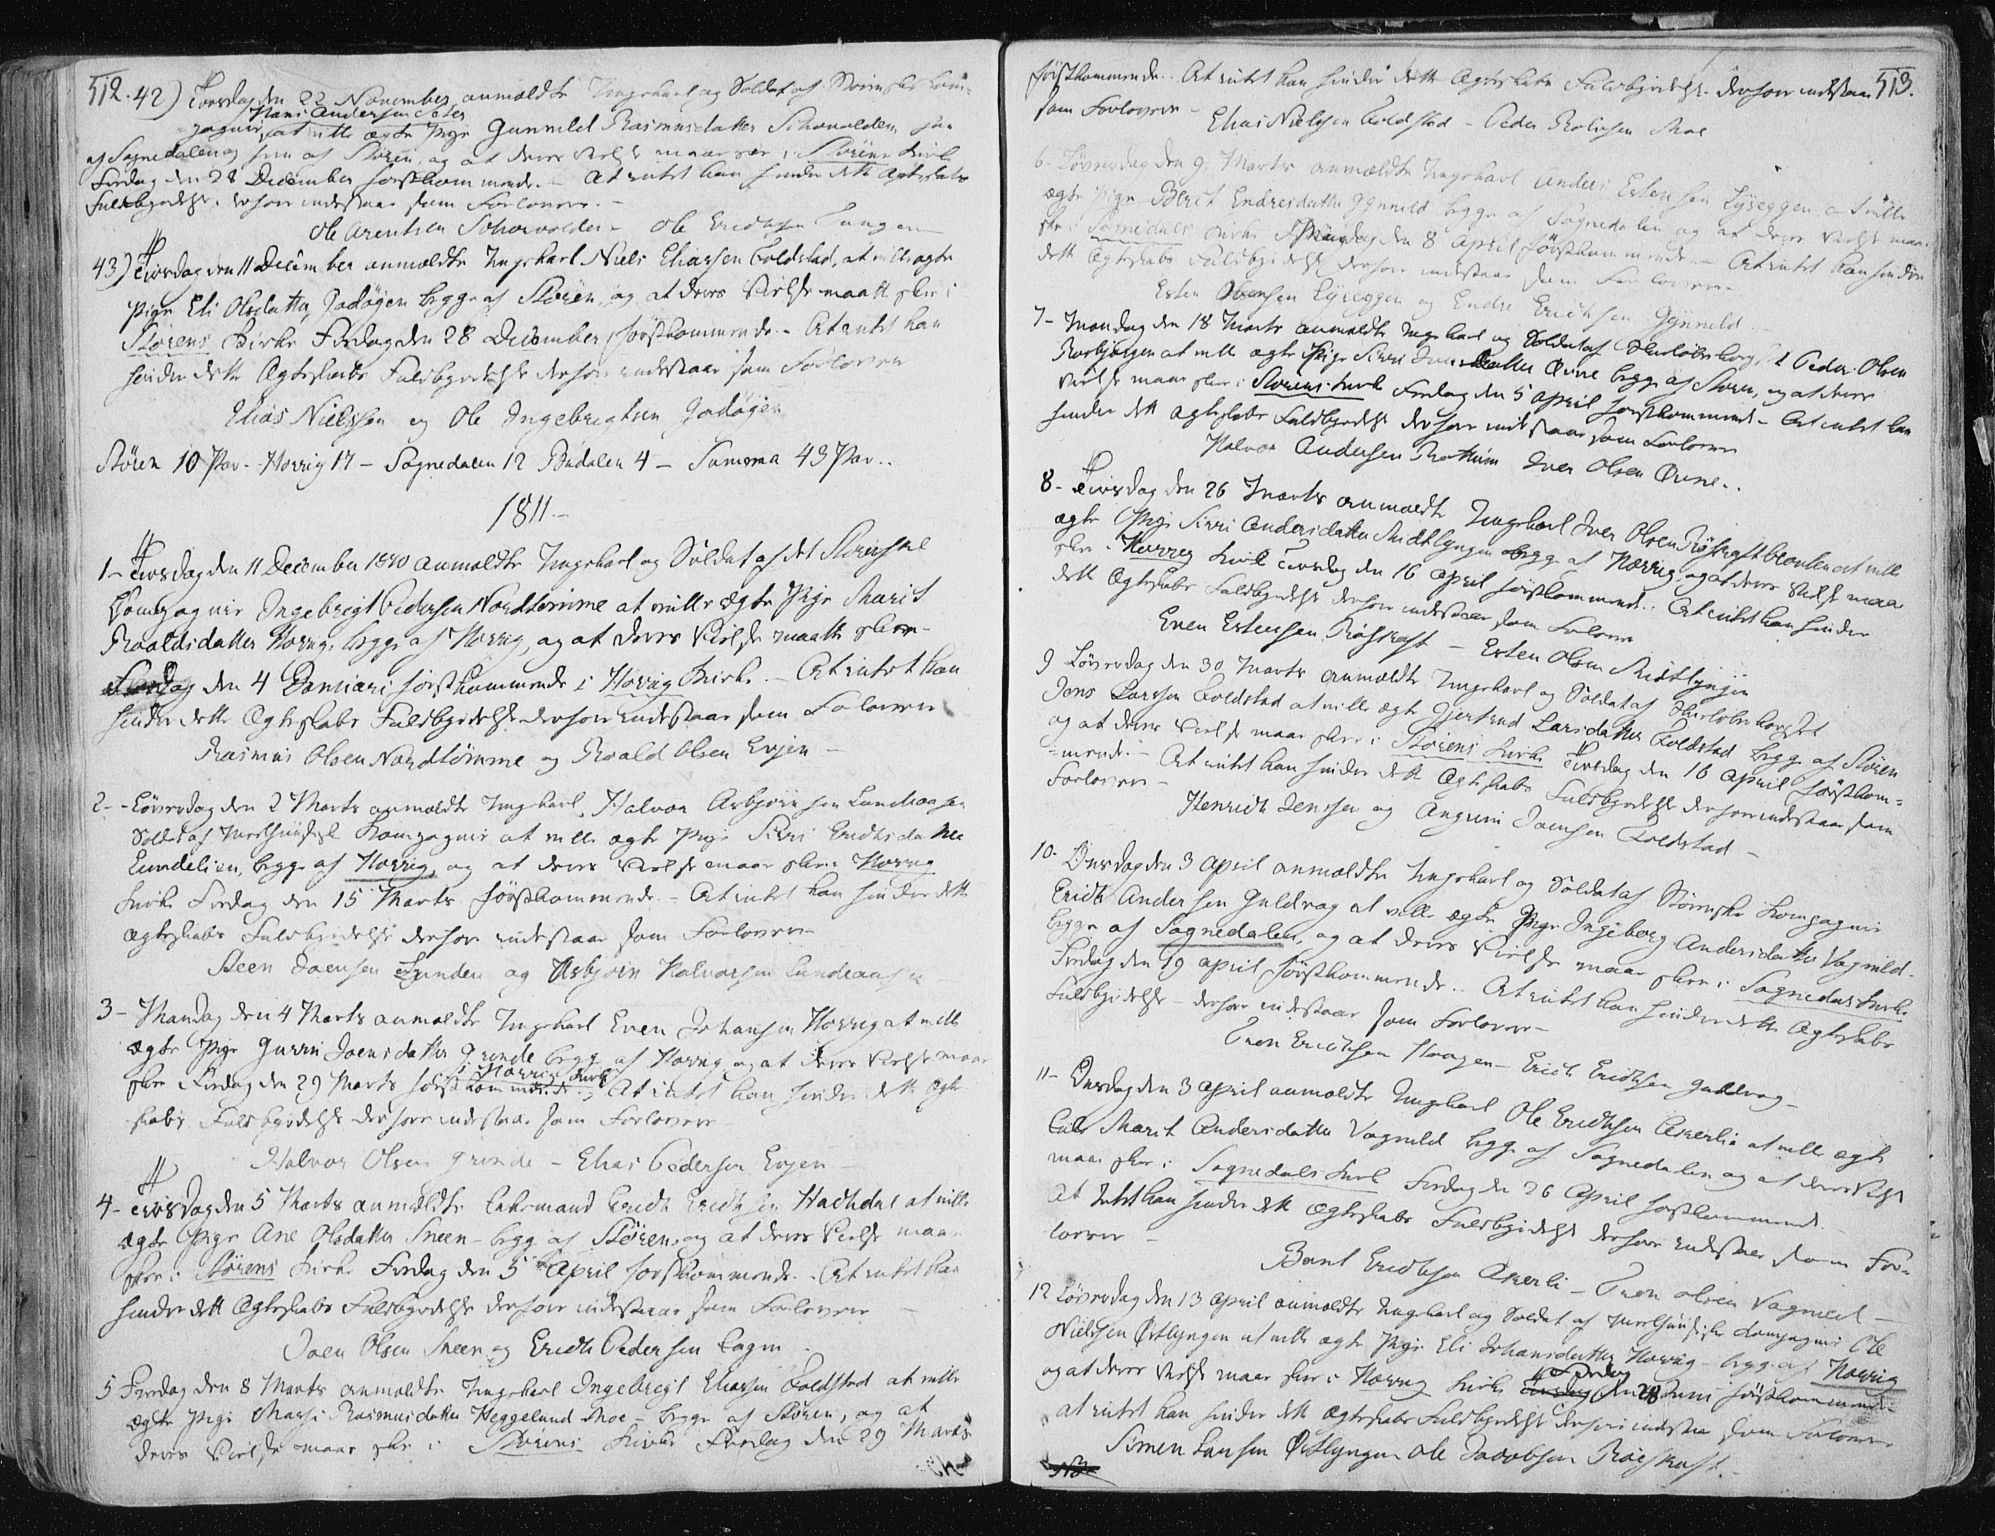 512.
42) Torsdag den 22 November anmældte Ungekarl og Soldat af Størenske Kom-
Hans Andersen
pagnie, at ville ægte Pige Gunnild Rasmusdatter Schoevolden
af Sognedalen og hun af Støren, og at deres Vielse maa skee i Størens Kirke
Fredag den 28 December førstkommende. - At intet kan hindre dette Ægteskabs
Fuldbyrdelse derfore indestaar som Forlovere -
Ole Arentsen Schoevolden - Ole Erichsen Tungen
43) Tirsdag den 11 December anmældte Ungekarl Niels Eliassen Foldstad, at ville ægte
Pige Eli Olsdatter Jadøgen begge af Støren og at deres Vielse maatte skee i
Størens Kirke Fredag den 28 December førstkommende - At intet kan
hindre dette Ægteskabs Fuldbyrdelse derfore indestaar som Forlovere
Elias Nielssen og Ole Ingebrigtsen Jadøgen
Støren 10 Par - Horrig 17 - Sognedalen 12 Budalen 4 - Summa 43 Par..
1811 -
1 - Tirsdag den 11 December 1810 anmældte Ungekarl og Soldat af det Størenske
Compagnie Ingebrigt Pedersen Nordtømme at ville ægte Pige Marit
Roaldsdatter Horrig, begge af Horrig, og at deres Vielse maatte skee
Fredag den 4 Januari førstkommende i Horrig Kirke. - At intet kan
hindre dette Ægteskabs Fuldbyrdelse derfore indestaar som Forlovere
Rasmus Olsen Nordtømme og Roald Olsen Evjen -
2 - Løverdag den 2 Marts anmældte Ungekarl Halvor Asbjørnsen Lundraasen
Soldat af Meelhuuske Kompagnie at ville ægte Pige Siri Erichsdatter
Lundelien, begge af Horrig, og at deres Vielse maae skee i Horrig
Kirke Fredag den 15 Marts førstkommende - At intet kan hindre dette
Ægteskabs Fuldbyrdelse derfore indestaar som Forlovere
Steen Joensen Lunden og Asbjørn Halvorsen Lundraasen
3 - Mandag den 4 Marts anmældte Ungekarl Even Johansen Horrig at ville
ægte Pige Gurru Joensdatter Grinde begge af Horrig og at deres Vielse maae
i Horrig Kirke
skee Fredag den 29 Marts førstkommende. At intet kan hindre dette Ægte
skabs Fuldbyrdelse derfore indestaar som Forlovere
Halvor Olsen Grinde - Elias Pedersen Evjen -
4 - Tirsdag den 5 Marts anmældte Enkemand Erich Erichsen Hachdal at ville
ægte Pige Ane Olsdatter Sneen - begge af Støren, og at deres Vielse maae
skee i Størens Kirke Fredag den 5 April førstkommende. At intet kan
hindre dette Ægteskabs Fuldbyrdelse derfore indestaar som Forlovere
Joen Olsen Sneen og Erich Pedersen Eagen
5 Fredag den 8 Marts anmældte Ungekarl Ingebrigt Eliassen Foldstad at ville
ægte Pige Rasmusdatter Heggelund Moe - begge af Støren, og at
deres Vielse maae skee i Størens Kirke Fredag den 29 Marts
513.
førstkommende. At intet kan hindre dette Ægteskabs Fuldbyrdelse derfore indestaar
som Forlovere - Elias Nielssen Foldstad - Peder Moe
6 - Løverdag den 9 Marts anmældte Ungekarl Anders Estensen Lyseggen at ville
ægte Pige Berit Endresdatter Gynnild begge af Sognedalen og at deres Vielse maae
skee i Sognedals Kirke Mandag den 8 April førstkommende - At intet kan hindre
dette Ægteskabs Fuldbyrdelse derfore indestaar som Forlovere -
Esten Lyseggen og Endre Erichsen Gynnild
7 - Mandag den 18 Marts anmældte Ungekarl og Soldat af Peder Olsen
at ville ægte Pige Siri Iversdatter Øvne begge af Støren, og at deres
Vielse maae skee i Størens Kirke Fredag den 5 April førstkommende - At intet kan
hindre dette Ægteskabs Fuldbyrdelse derfore indestaar som Forlovere
Halvor Andersen Iver Olsen Øvne..
8 - Tirsdag den 26 Marts anmældte Ungekarl Iver Olsen Røskaft at ville
ægte Pige Siri Andersdatter Midtlyngen begge af Horrig, og at deres Vielse maae
skee i Horrig Kirke Tirsdag den 16 April førstkommende. At intet kan hindre
dette Ægteskabs Fuldbyrdelse derfore indestaar som Forlovere
Even Estensen Røskaft - Esten Olsen Midtlyngen
9 Løverdag den 30 Marts anmældte Ungekarl og Soldat af
Jens Larssen Foldstad at ville ægte Gjertrud Larsdatter Foldstad begge af Støren
og at deres Vielse maae skee i Størens Kirke Tirsdag den 16 April førstkom-
mende. - At intet kan hindre dette Ægteskabs Fuldbyrdelse derfore indestaar som
Forlovere -
Henrich Jenssen og Joensen Foldstad -
10 - Onsdag den 3 April anmældte Ungekarl og Soldat af Størenske Kompagnie
Erich Andersen Guldvag at ville ægte Pige Ingeborg Andersdatter Vagnild -
begge af Sognedalen, og at deres Vielse maae skee i Sognedals Kirke
Fredag den 19 April førstkommende. - At intet kan hindre dette Ægteskabs
Fuldbyrdelse - derfore indestaar som Forlovere -
Erichsen Haagen - Erich Erichsen Guldvag -
11 - Onsdag den 3 April anmældte Ungekarl Ole Erichsen Aserlie at ville ægte
Enke Marit Andersdatter Vagnild begge af Sognedalen og at deres Vielse
maae skee i Sognedals Kirke Fredag den 26 April førstkommende
At intet kan hindre dette Ægteskabs Fuldbyrdelse derfore indestaar som For-
lovere -
Bent Erichsen Aserli - Olsen Vagnild -
12 Løverdag den 13 April anmældte Ungekarl og Soldat af Meelhuuske Kompagnie Ole
Nielssen Østlyngen at ville ægte Pige Eli Johansdatter Horrig - begge af Horrig
Fredag
og at deres Vielse maae skee i Horrig Kirke den 28 Juni førstkommende
at intet kan hindre dette Ægteskabs Fuldbyrdelse derfore indestaar som Forlovere
Simen Larsen Østlyngen Ole Jacobsen Røeskaft. -